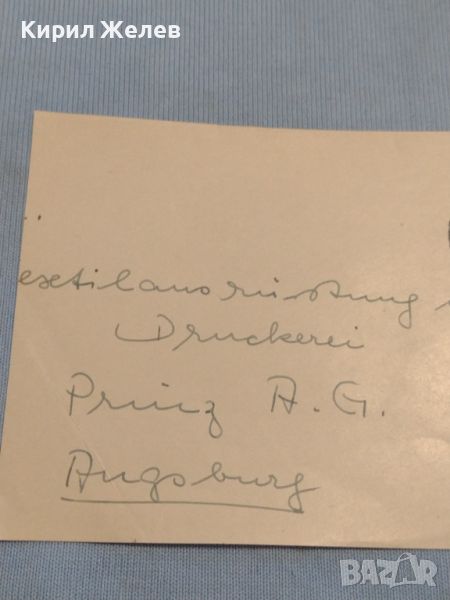 Кирил Желев
extilausrüstung
Druckerei
Prinz A.G.
Augsburg
BAZAR